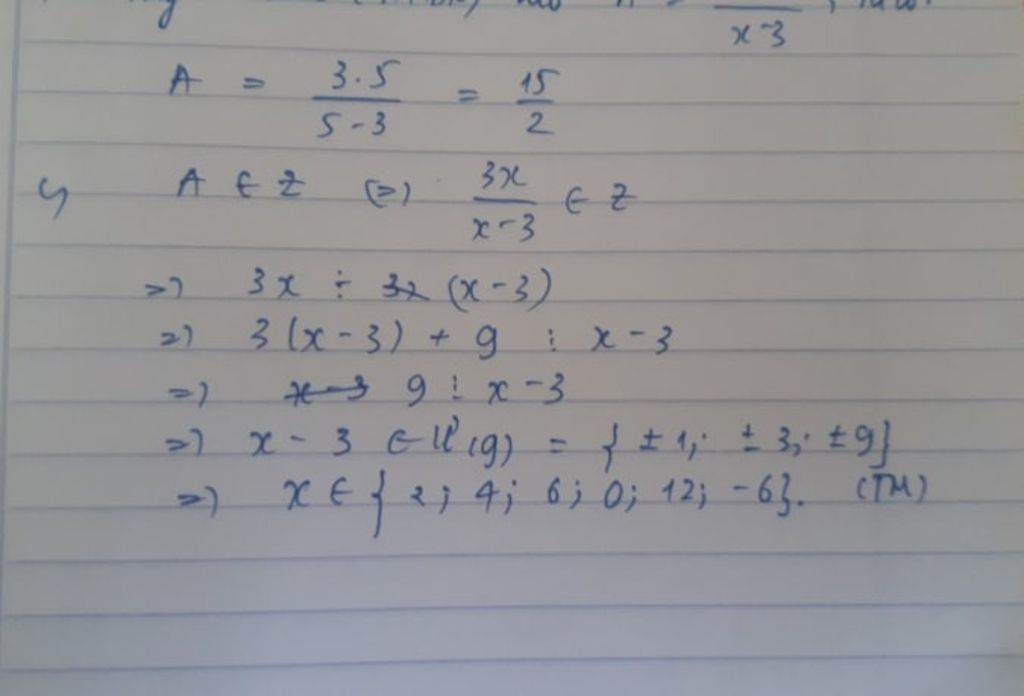 x-3
A = 3.5 / 5-3 = 15 / 2
c, A ∈ Z (=) 3x / x-3 ∈ Z
=> 3x ⋮ (x-3)
=> 3(x-3) + 9 ⋮ x-3
=> 9 ⋮ x-3
=> x-3 ∈ Ư(9) = {±1; ±3; ±9}
=> x ∈ {2; 4; 6; 0; 12; -6}. (TM)